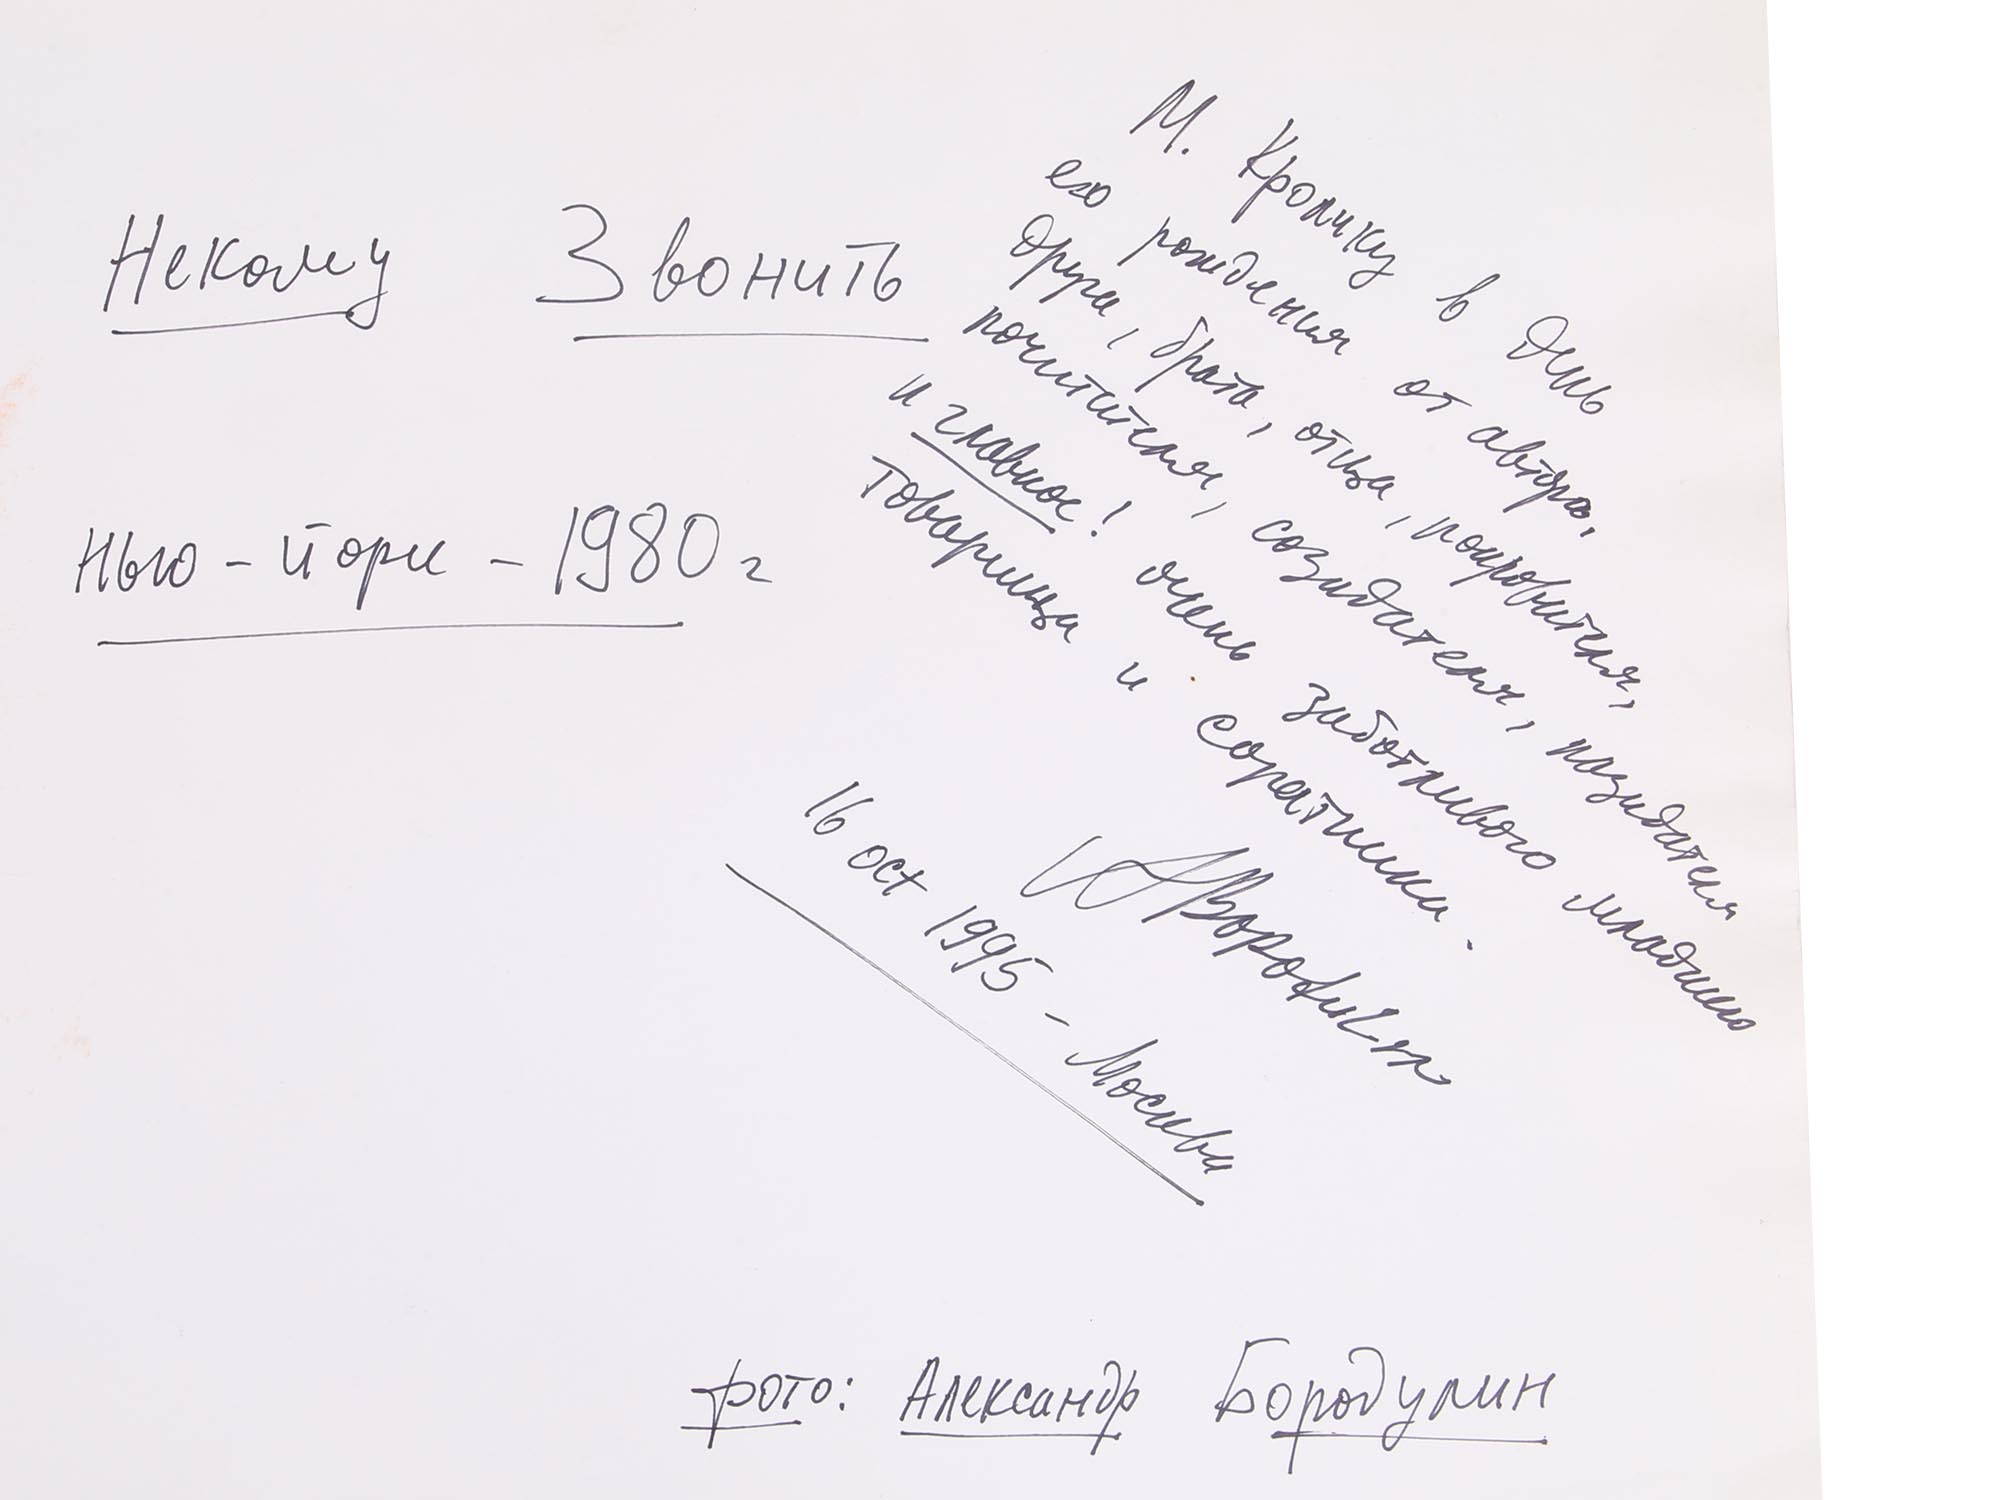 Некому Звонить
Нью-Йорк - 1980 г
М. Кролику в день
его рождения от автора,
друга, брата, отца, покровителя,
почитателя, созидателя, назидателя
и главное! очень заботливого младшего
товарища и соратника.
ABorodulin
16 окт 1995 - Москва
фото: Александр Бородулин